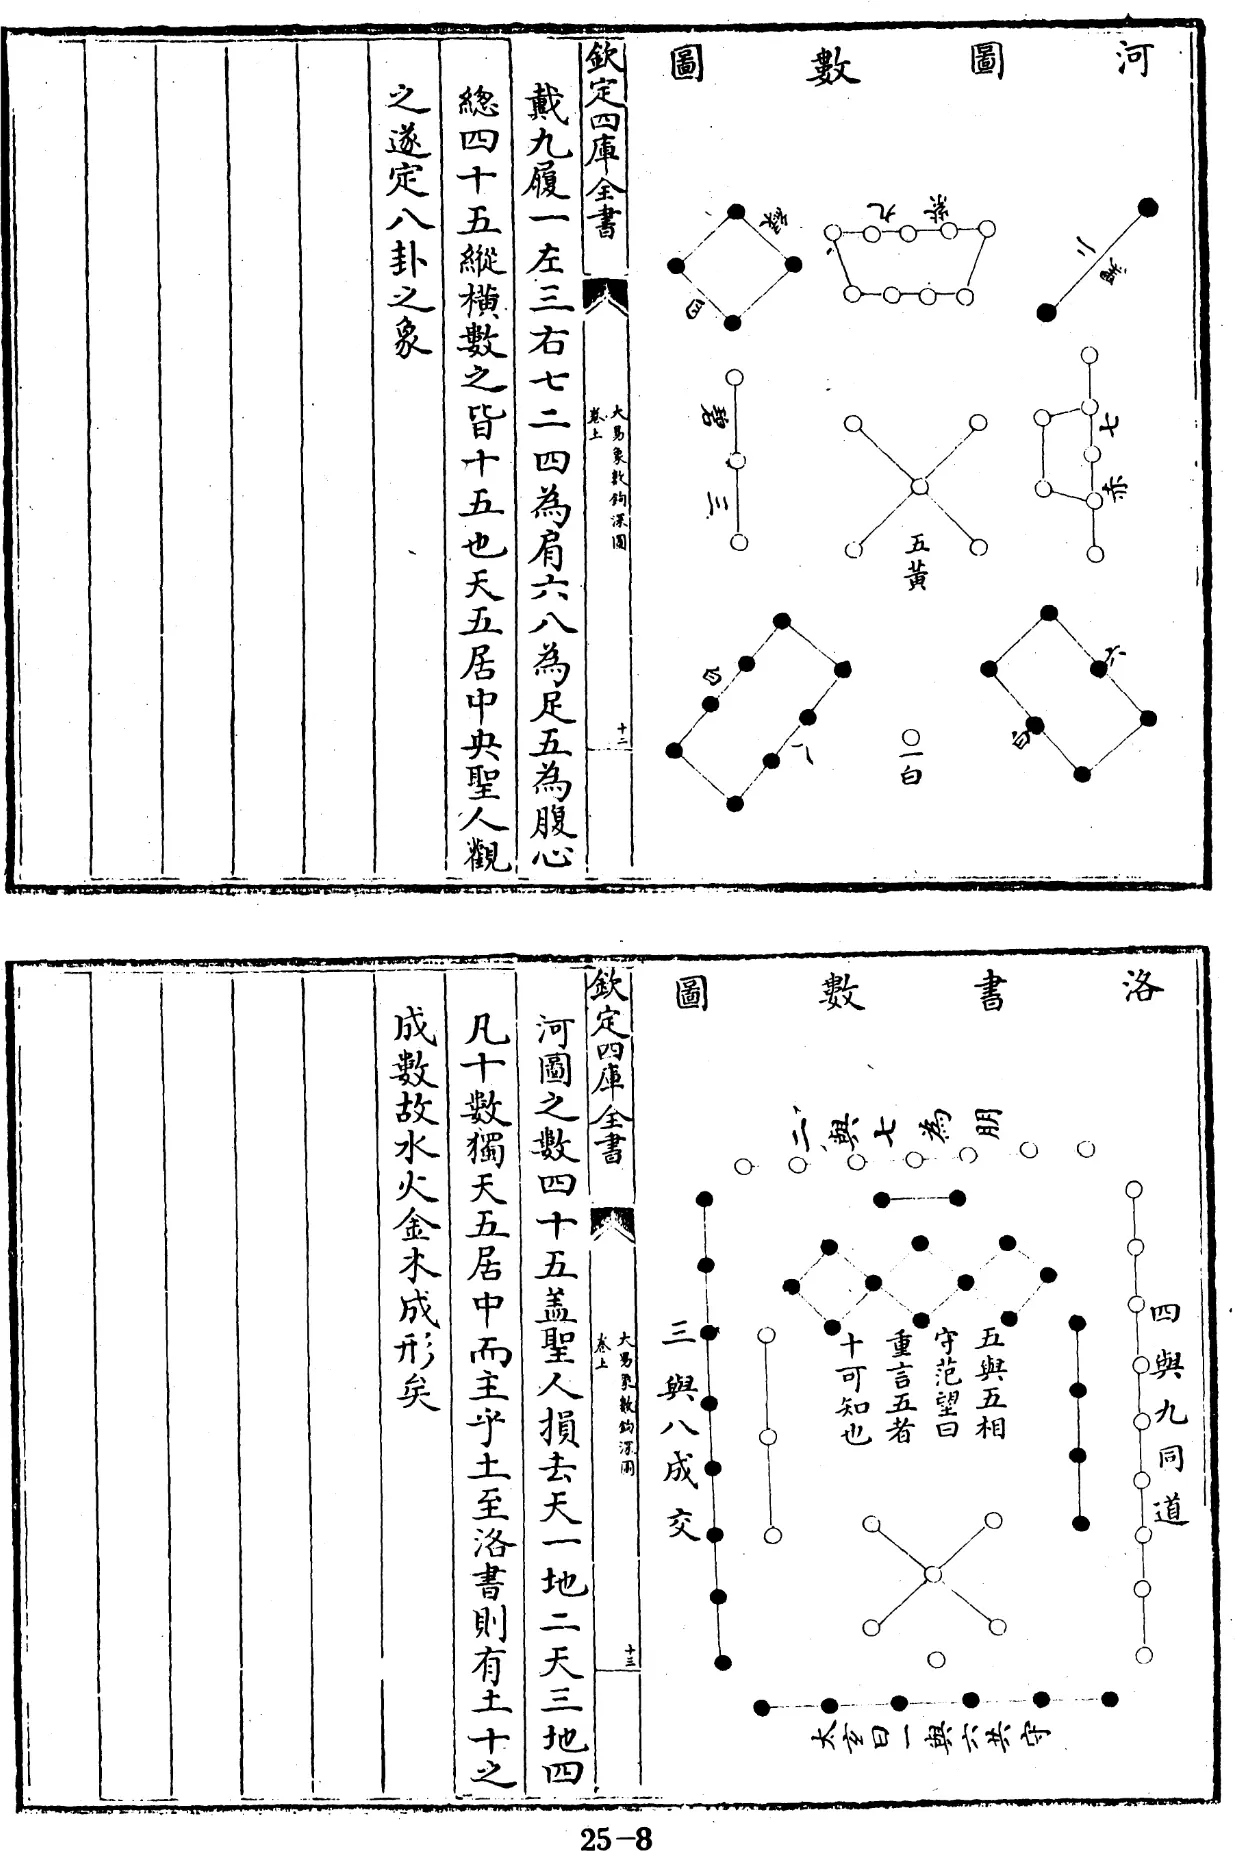 河圖數圖
二黑
七赤
六白
紫九
五黃
一白
綠四
碧三
八白
欽定四庫全書
大易象數鉤深圖
卷上
十二
戴九履一左三右七二四為肩六八為足五為腹心
總四十五縱橫數之皆十五也天五居中央聖人觀
之遂定八卦之象
洛書數圖
四與九同道
二與七為朋
五與五相
守范望曰
重言五者
十可知也
三與八成交
太玄曰一與六共守
欽定四庫全書
大易象數鉤深圖
卷上
十三
河圖之數四十五盖聖人損去天一地二天三地四
凡十數獨天五居中而主乎土至洛書則有土十之
成數故水火金木成形矣
25-8